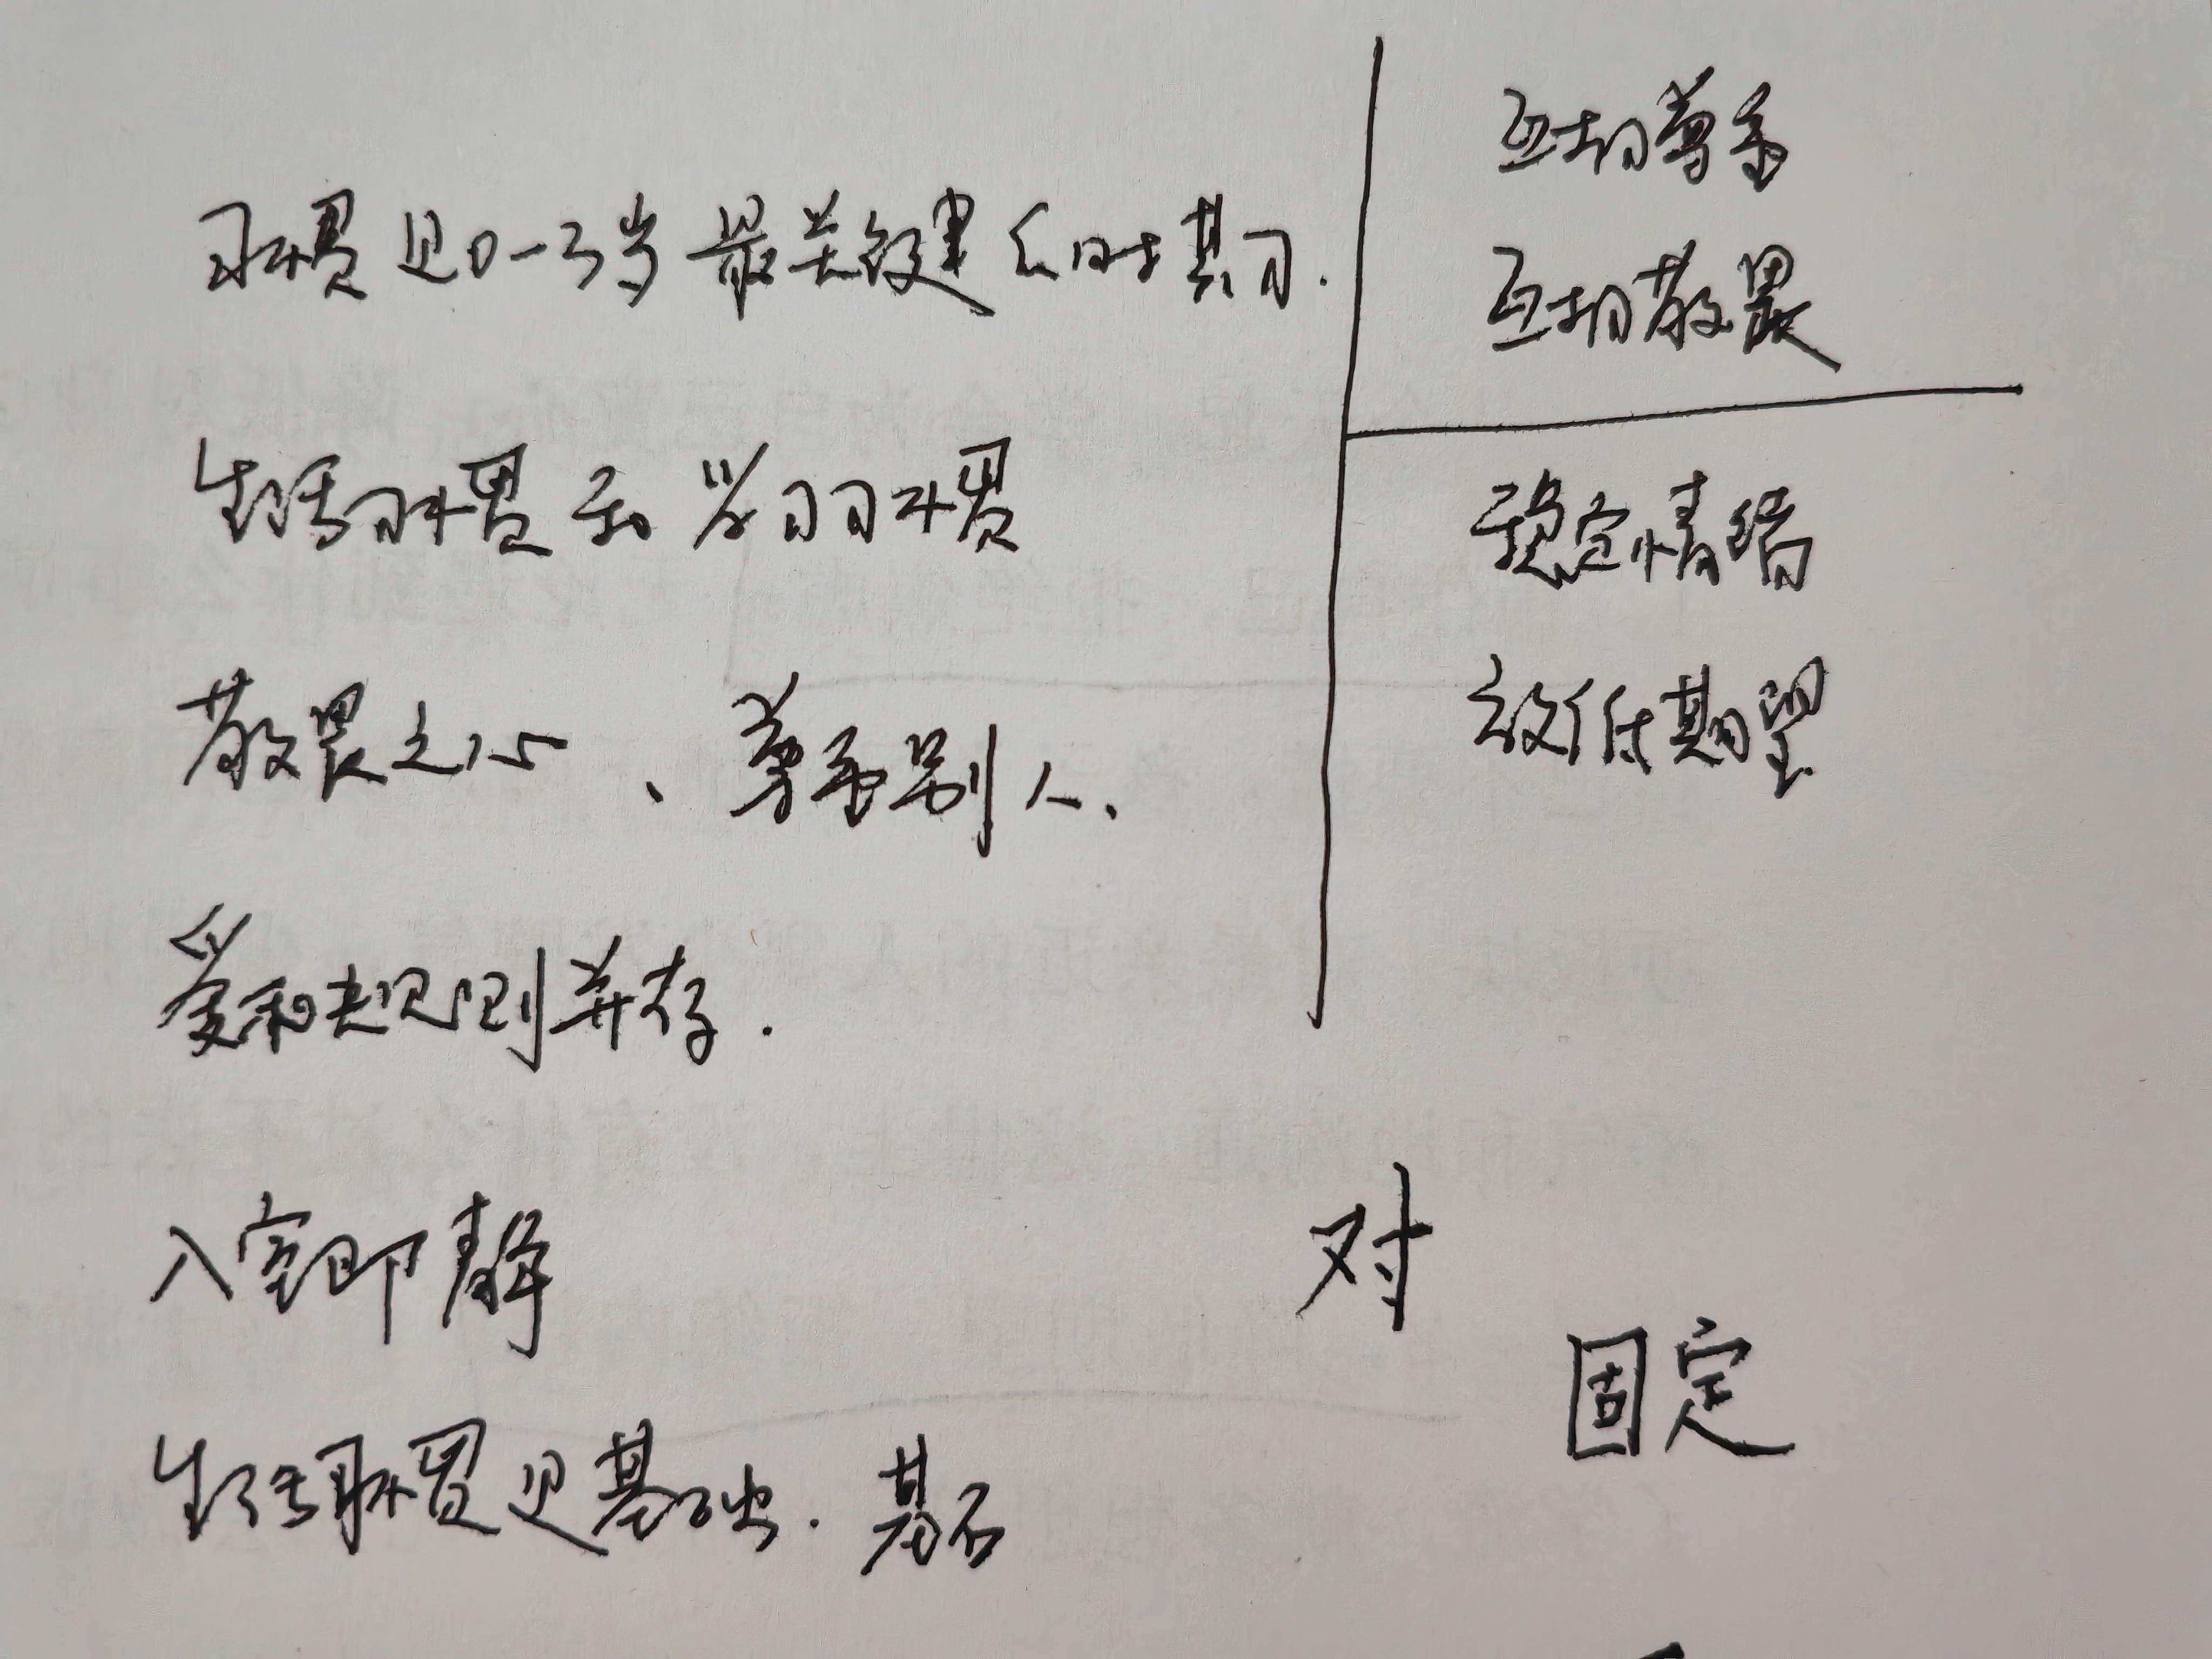 习惯是0-3岁最关键的时期.
生活习惯和学习习惯
敬畏之心、尊重别人.
爱和规则并存.
入室即静
生活习惯是基础.基石
互相尊重
互相敬畏
稳定情绪
放低期望
对
固定